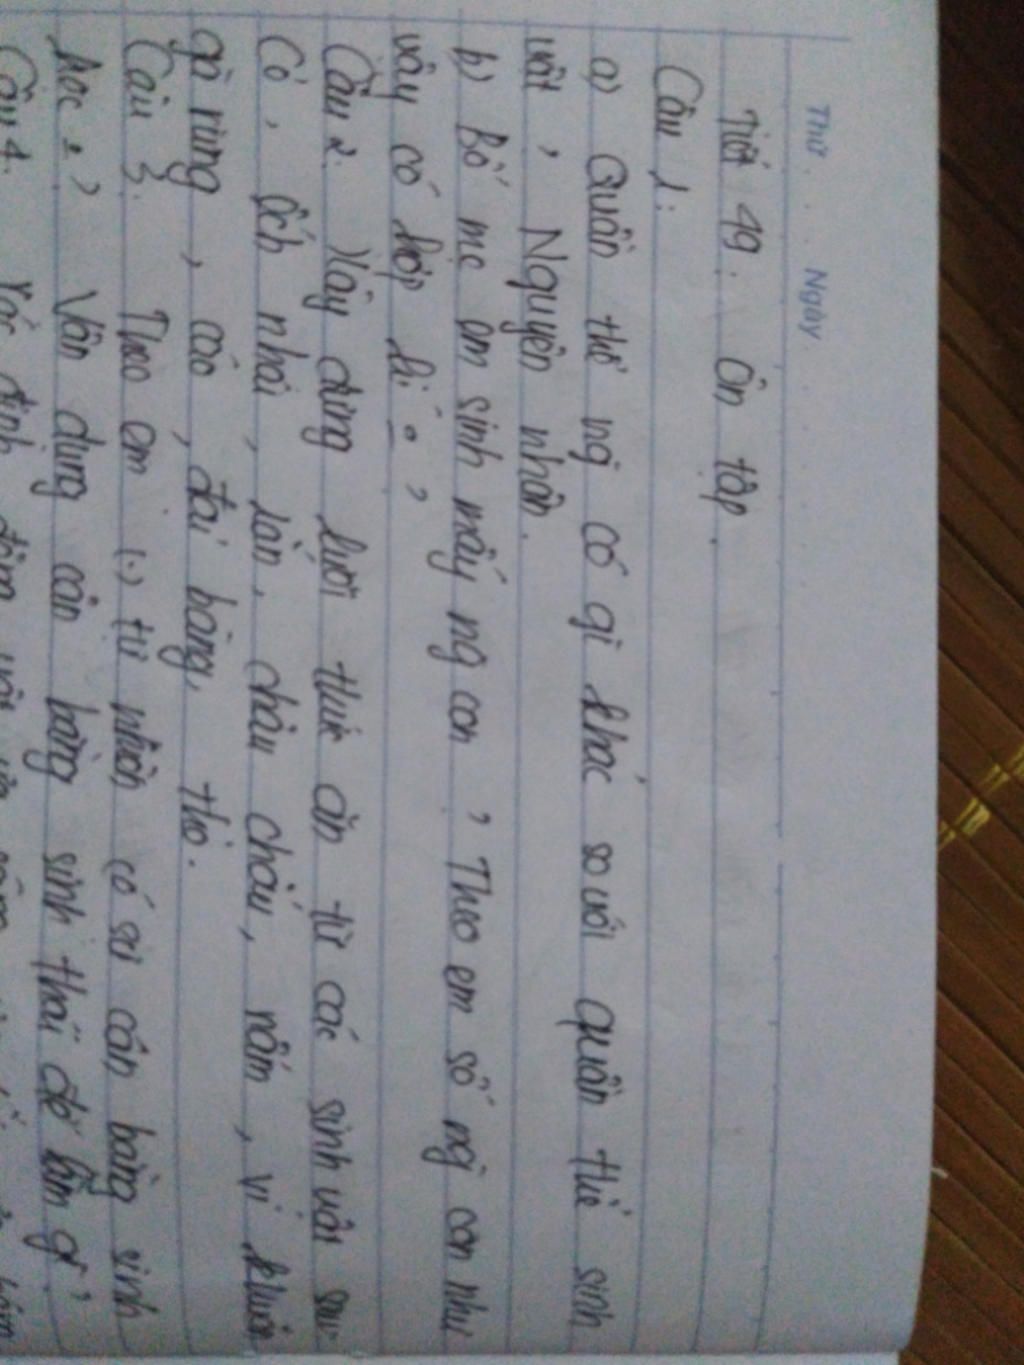 Thứ Ngày
Tiết 49: Ôn tập.
Câu 1:
a) Quần thể ng có gì khác so với quần thể sinh
vật, Nguyên nhân.
b) Bố mẹ em sinh mấy ng con, Theo em số ng con như
vậy có hợp lí ,
Câu 2. Xây dựng lưới thức ăn từ các sinh vật sau.
Cỏ, ếch nhái, rắn, châu chấu, nấm, vi khuẩn
gà rừng, cáo, đại bàng, thỏ.
Câu 3. Theo em (.) tự nhiên có sự cân bằng sinh
học ,) Vận dụng cân bằng sinh thái để làm gì,
Câu 4.